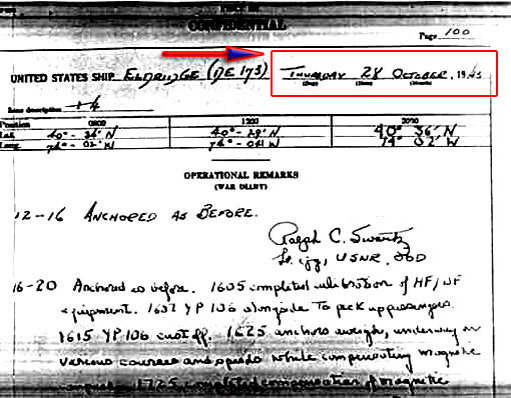 CONFIDENTIAL
Page 100
UNITED STATES SHIP ELDRIDGE (DE 173) THURSDAY 28 OCTOBER, 1943
(Day) (Date) (Month)
Zone description
Position 0800 1200 2000
Lat. 40° - 36' N 40° - 29' N 40° 36' N
Long. 74° - 02' W 74° - 04' W 74° 02' W
OPERATIONAL REMARKS
(WAR DIARY)
12-16 ANCHORED AS BEFORE.
Ralph C. Swartz
Lt. (jg), USNR, OOD
16-20 Anchored as before. 1605 completed calibration of HF/DF
equipment. 1607 YP 106 alongside to pick up passengers.
1615 YP 106 cast off. 1625 anchors aweigh, underway on
various courses and speeds while compensating magnetic
compass. 1725 completed compensation of magnetic